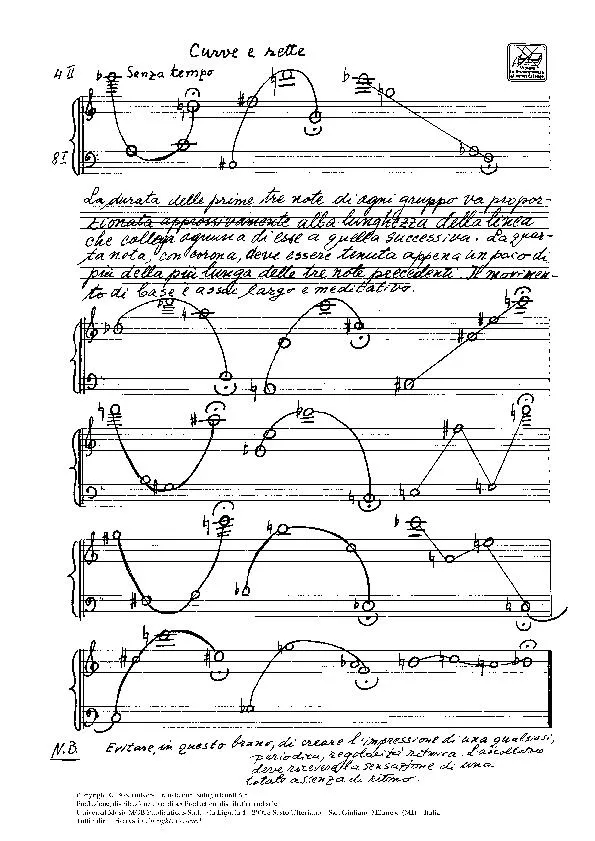 Curve e rette
4 II
Senza tempo
8 I
La durata delle prime tre note di ogni gruppo va propor-
zionata approssivamente alla lunghezza della linea
che collega ognuna di esse a quella successiva. La quar-
ta nota, con corona, deve essere tenuta appena un poco di
più della più lunga delle tre note precedenti. Il movimen-
to di base è assai largo e meditativo.
N.B. Evitare, in questo brano, di creare l'impressione di una qualsiasi,
periodica, regolarità ritmica. L'ascoltatore
deve ricevere la sensazione di una
totale assenza di ritmo.
Universal Music MGB Publications Italia